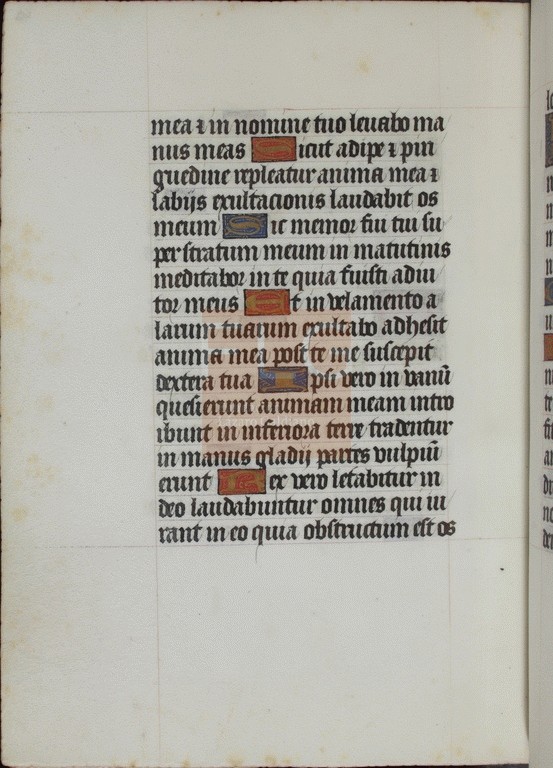 mea ⁊ in nomine tuo leuabo ma
nus meas Sicut adipe ⁊ pin
guedine repleatur anima mea ⁊
labijs exultacionis laudabit os
meum Sic memor fui tui su
per stratum meum in matutinis
meditabor in te quia fuisti adiu
tor meus Et in velamento a
larum tuarum exultabo adhesit
anima mea post te me suscepit
dextera tua Ipsi vero in vanū
quesierunt animam meam intro
ibunt in inferiora terre tradentur
in manus gladij partes vulpiū
erunt Rex vero letabitur in
deo laudabuntur omnes qui iu
rant in eo quia obstructum est os